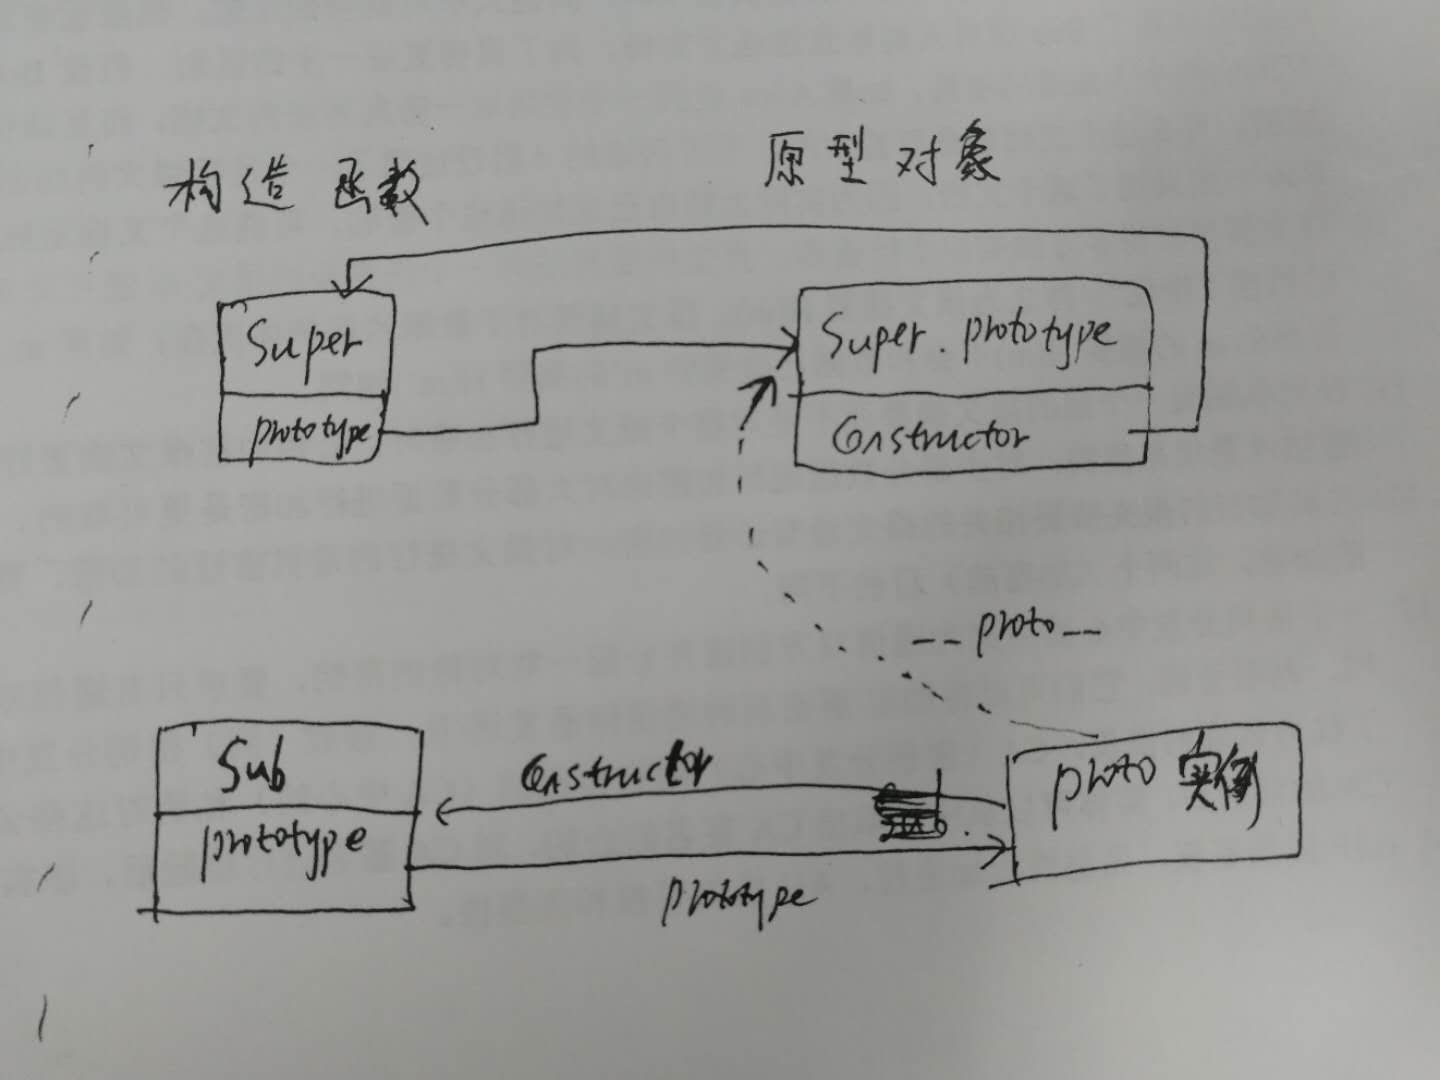 构造 函数
原型 对象
Super
prototype
Super. prototype
Constructor
-- proto --
Sub
prototype
Constructor
prototype
proto 实例